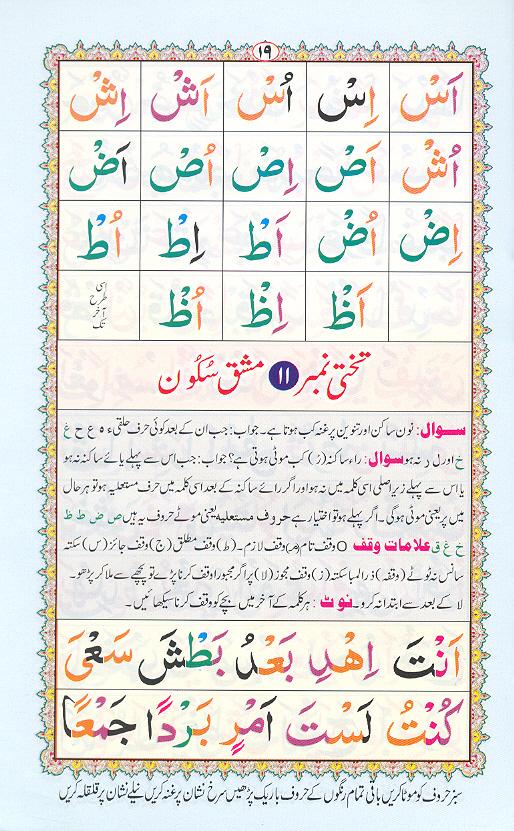 ١٩
اَسْ اِسْ اُسْ اَشْ اِشْ
اُشْ اَصْ اِصْ اُصْ اَضْ
اِضْ اُضْ اَطْ اِطْ اُطْ
اَظْ اِظْ اُظْ اسی طرح آخر تک
تختی نمبر ۱۱ مشق سکُون
سوال: نون ساکن اور تنوین پر غنہ کب ہوتا ہے۔ جواب: جب ان کے بعد کوئی حرف حلقی ء ہ ع ح غ
خ اور ل ر نہ ہو سوال: راء ساکنہ (رْ) کب موٹی ہوتی ہے؟ جواب: جب اس سے پہلے یائے ساکنہ نہ ہو
یا اس سے پہلے زیر اصلی اسی کلمہ میں نہ ہو اور اگر رائے ساکنہ کے بعد اسی کلمہ میں حرف مستعلیہ ہو تو ہر حال
میں پر یعنی موٹی ہوگی۔ اگر پہلے ہو تو اختیار ہے حروف مستعلیہ یعنی موٹے حروف یہ ہیں ص ض ط ظ
خ غ ق علامات وقف O وقف تام (مـ) وقف لازم۔ (ط) وقف مطلق (ج) وقف جائز (س) سکتہ
سانس نہ ٹوٹے (وقفہ) ذرا لمبا سکتہ (ز) وقف مجوز (لا) پر اگر مجبورا وقف کرنا پڑے تو پیچھے سے ملا کر پڑھو۔
لا کے بعد سے ابتدا نہ کرو۔ نوٹ: ہر کلمہ کے آخر میں بچے کو وقف کرنا سیکھائیں۔
اَنْتَ اِهْدِ بَعْدُ بَطْشَ سَعْىَ
كُنْتُ لَسْتَ اَمْرٍ بَرْدًا جَمْعًا
سبز حروف کو موٹا کریں باقی تمام رنگوں کے حروف باریک پڑھیں سرخ نشان پر غنہ کریں نیلے نشان پر قلقلہ کریں